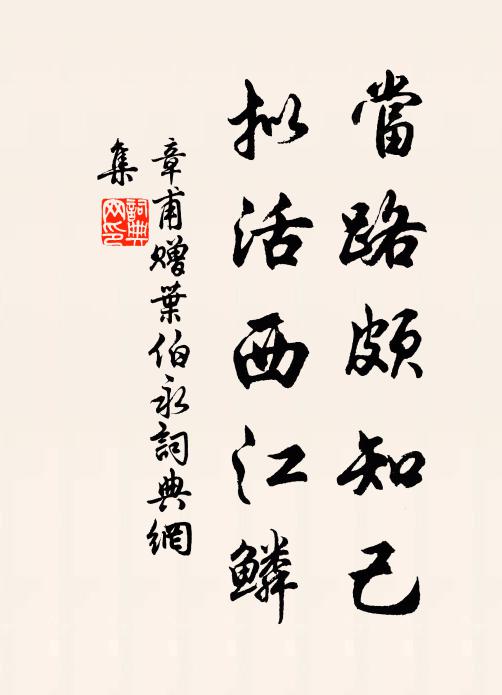 當路頗知己
拟活西江鱗
章甫贈葉伯永詞典網
集
詞典
网印